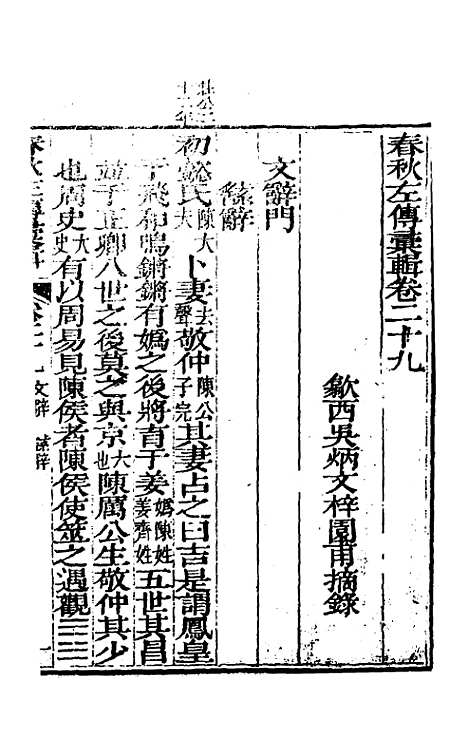 春秋左傳彙輯卷二十九
歙西吳炳文梓園甫摘錄
文辭門
繇辭
初懿氏陳大夫卜妻去聲敬仲陳公子完其妻占之曰吉是謂鳳皇
于飛和鳴鏘鏘有媯之後將育于姜媯陳姓姜齊姓五世其昌
並于正卿八世之後莫之與京大也陳厲公生敬仲其少
也周史大史有以周易見陳侯者陳侯使筮之遇觀
文辭 繇辭